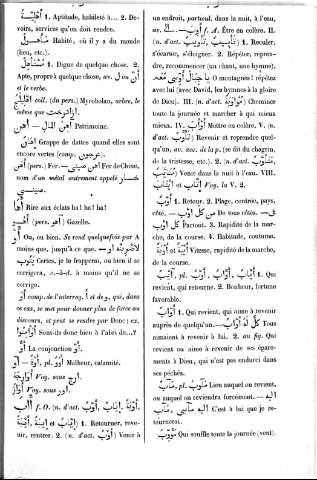 أَهْلِيَّةٌ 1. Aptitude, habileté à... 2. De-
voirs, services qu'on doit rendre.
مَأْهُولٌ Habité, où il y a du monde
(lieu, etc.).
مُسْتَأْهِلٌ 1. Digne de quelque chose. 2.
Apte, propre à quelque chose, av. ل ou أن
et le verbe.
coll. (du pers.) Myrobolan, arbre, le
même que
أهن — أَهْنُ المال Patrimoine.
إهان Grappe de dattes quand elles sont
encore vertes (comp. عرجون).
أهن (pers.) Fer. — Fer de Chine,
nom d'un métal autrement appelé خار
صينى
أها Rire aux éclats ha! ha! ha!
(pers.) Gazelle.
أو Ou, ou bien. Se rend quelquefois par A
moins que, jusqu'à ce que. — لاضربنه او
يتوب Certes, je le frapperai, ou bien il se
corrigera, c.-à-d. à moins qu'il ne se
corrige.
أو comp. de l'interrog. أ et de و, qui, dans
ce cas, se met pour donner plus de force au
discours, et peut se rendre par Donc; ex.
أوأمنوا Sont-ils donc bien à l'abri de...?
أو La conjonction أو.
أو, pl. Malheur, calamité.
Voy. sous أرج.
Voy. sous أور.
آب f. O. (n. d'act. أَوْبٌ, إِيَابٌ, أَوْبَةٌ,
أَيْبَةٌ et إِيبَةٌ) 1. Retourner, reve-
nir, rentrer. 2. (n. d'act. أَوْبٌ) Venir à
un endroit, partout. dans la nuit, à l'eau,
av. ... f. A. Être en colère. II.
(n. d'act. تَأْوِيبٌ, ) 1. Reculer,
s'écarter, s'éloigner. 2. Répéter, repren-
dre, recommencer (un chant, une hymne).
يا جبال أوبى معه O montagnes! répétez
avec lui (avec David, les hymnes à la gloire
de Dieu). III. (n. d'act. مُؤَاوَبَةٌ) Cheminer
toute la journée et marcher à qui mieux
mieux. IV. Mettre en colère. V. (n.
d'act. تَأَوُّبٌ) Revenir et reprendre quel-
qu'un, av. acc. de la p. (se dit du chagrin,
de la tristesse, etc.). 2. (n. d'act. ,
) Venir dans la nuit à l'eau. VIII.
et إيتاب Voy. la V. 2.
أَوْبٌ 1. Retour. 2. Plage, contrée, pays,
côté. — من كل اوب De tous côtés. — فى
كل اوب Partout. 3. Rapidité de la mar-
che, de la course. 4. Habitude, coutume.
أَوْبَةٌ et Vitesse, rapidité de la marche,
de la course.
آئِبٌ, pl. أُوَّبٌ, أُيَّابٌ, أَوْبٌ 1. Qui
revient, qui retourne. 2. Bonheur, fortune
favorable.
أَوَّابٌ 1. Qui revient, qui aime à revenir
auprès de quelqu'un. — كل له أواب Tous
aimaient à revenir à lui. 2. au fig. Qui
revient ou aime à revenir de ses égare-
ments à Dieu, qui n'est pas endurci dans
ses péchés.
مَآبٌ, pl. مآوب Lieu auquel on revient,
ou auquel on reviendra forcément. — اليه
مآبى C'est à lui que je re-
tournerai.
مُؤَوِّبٌ Qui souffle toute la journée (vent).